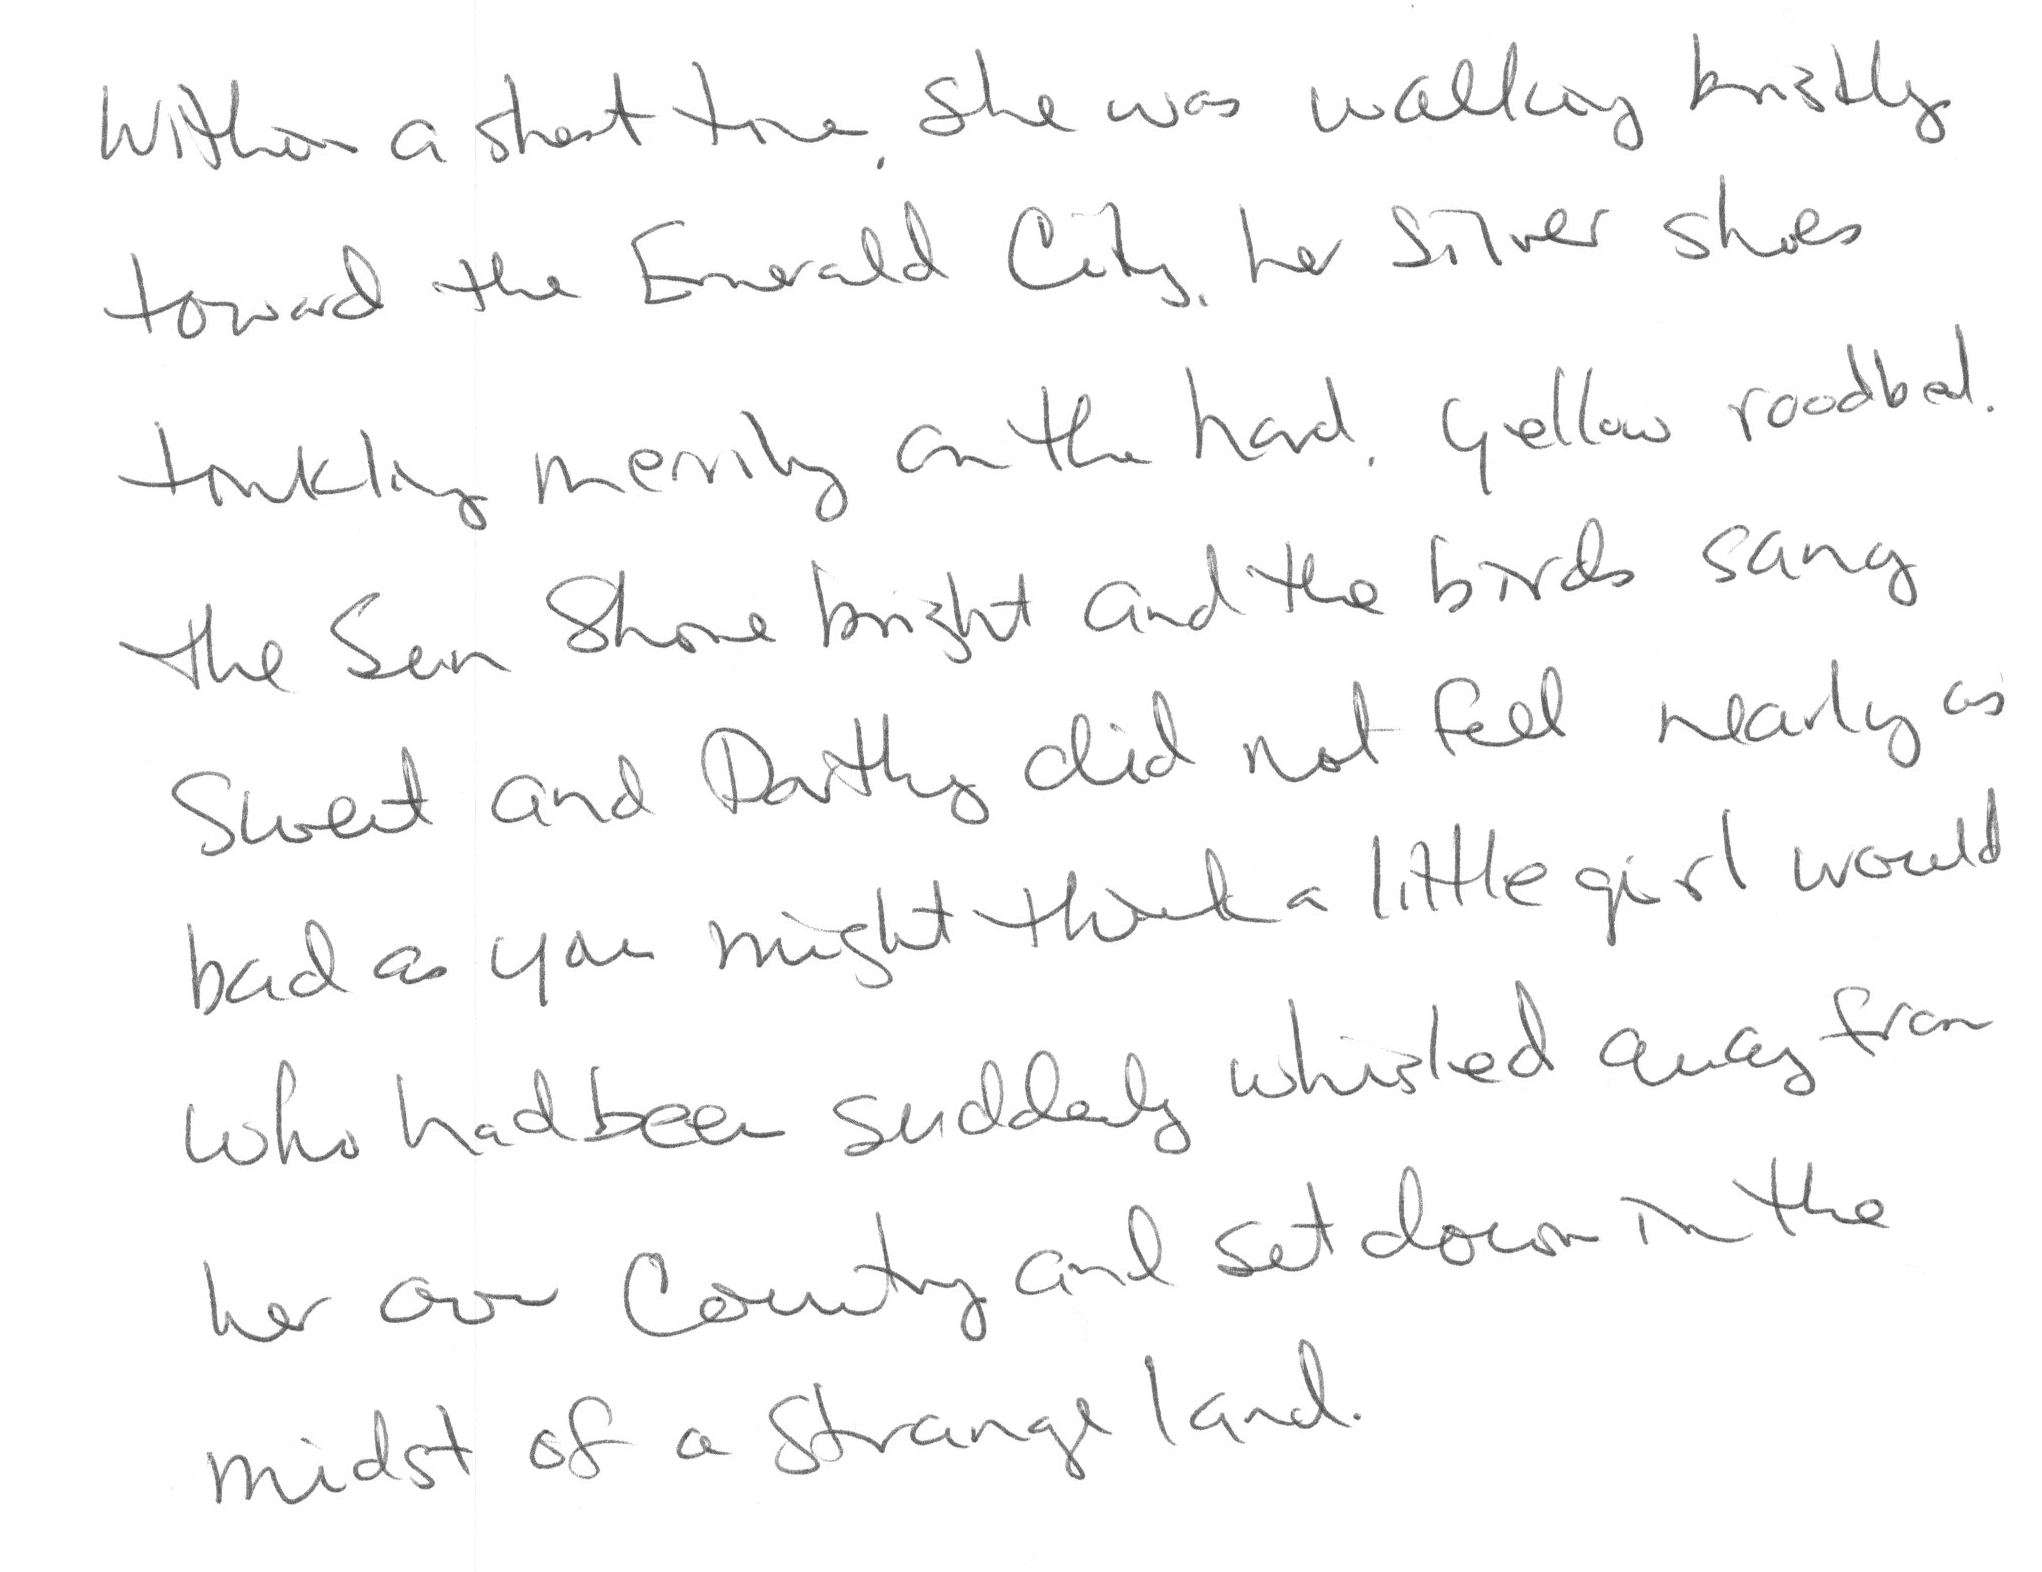 Within a short time, she was walking briskly
toward the Emerald City, her Silver shoes
tinkling merrily on the hard, yellow roadbed.
the Sun Shone bright and the birds sang
Sweet and Dorothy did not feel nearly as
bad as you might think a little girl would
who had been suddenly whisked away from
her own Country and set down in the
midst of a strange land.